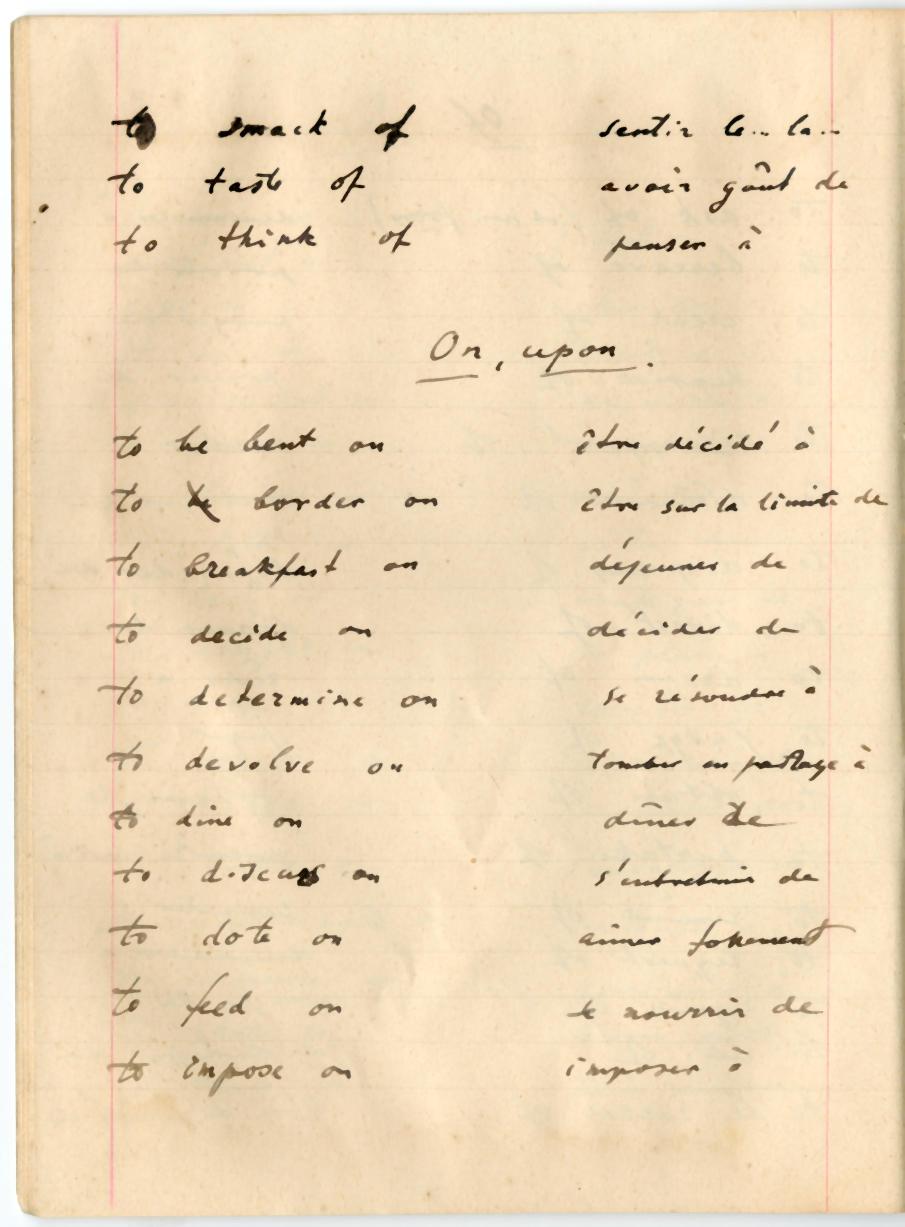 to smack of sentir le... la...
to taste of avoir goût de
to think of penser à
On, upon.
to be bent on être décidé à
to be border on être sur la limite de
to breakfast on déjeuner de
to decide on décider de
to determine on se résoudre à
to devolve on tomber en partage à
to dine on dîner de
to discuss on s'entretenir de
to dote on aimer follement
to feed on se nourrir de
to impose on imposer à